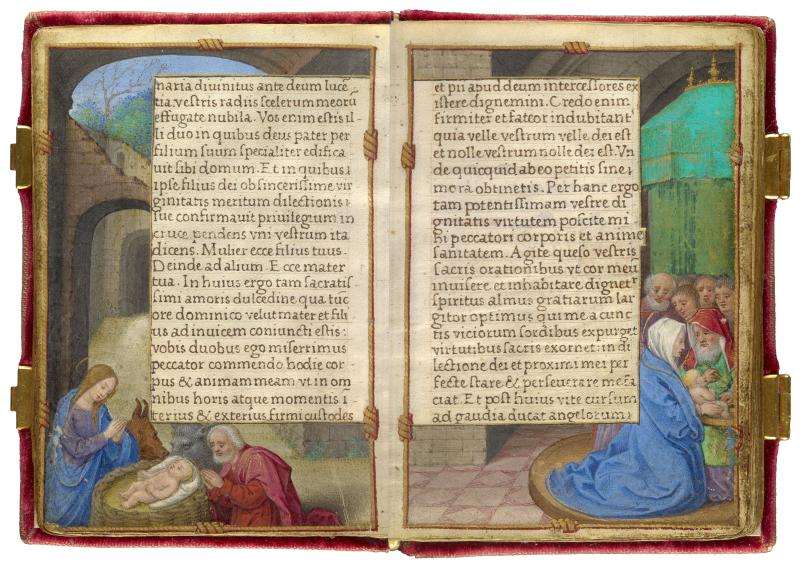 naria diuinitus ante deum lucē
tia, vestris radiis scelerum meorū
effugate nubila. Vos enim estis il-
li duo in quibus deus pater per
filium suum specialiter edifica
uit sibi domum. Et in quibus i
ipse filius dei ob sincerissime vir
ginitatis meritum dilectionis i
sue confirmauit priuilegium in
cruce pendens vni vestrum ita
dicens. Mulier ecce filius tuus.
Deinde ad alium. Ecce mater
tua. In huius ergo tam sacratis
simi amoris dulcedine qua tūc
ore dominico velut mater et fili
us ad inuicem coniuncti estis:
vobis duobus ego miserrimus
peccator commendo hodie cor
pus & animam meam vt in om
nibus horis atque momentis i
terius & exterius firmi custodes
et pii apud deum intercessores ex
istere dignemini. Credo enim
firmiter et fateor indubitant
quia velle vestrum velle dei est
et nolle vestrum nolle dei est. Vn
de quicquid ab eo petitis sine i
mora obtinetis. Per hanc ergo
tam potentissimam vestre di
gnitatis virtutem poscite mi
hi peccatori corporis et anime
sanitatem. Agite queso vestris
sacris orationibus vt cor meū
inuisere et inhabitare dignetr
spiritus almus gratiarum lar
gitor optimus qui me a cunc
tis viciorum sordibus expurget
virtutibus sacris exornet: in di
lectione dei et proximi mei per
fecte stare & perseuerare me fa
ciat. Et post huius vite cursum
ad gaudia ducat angelorum i